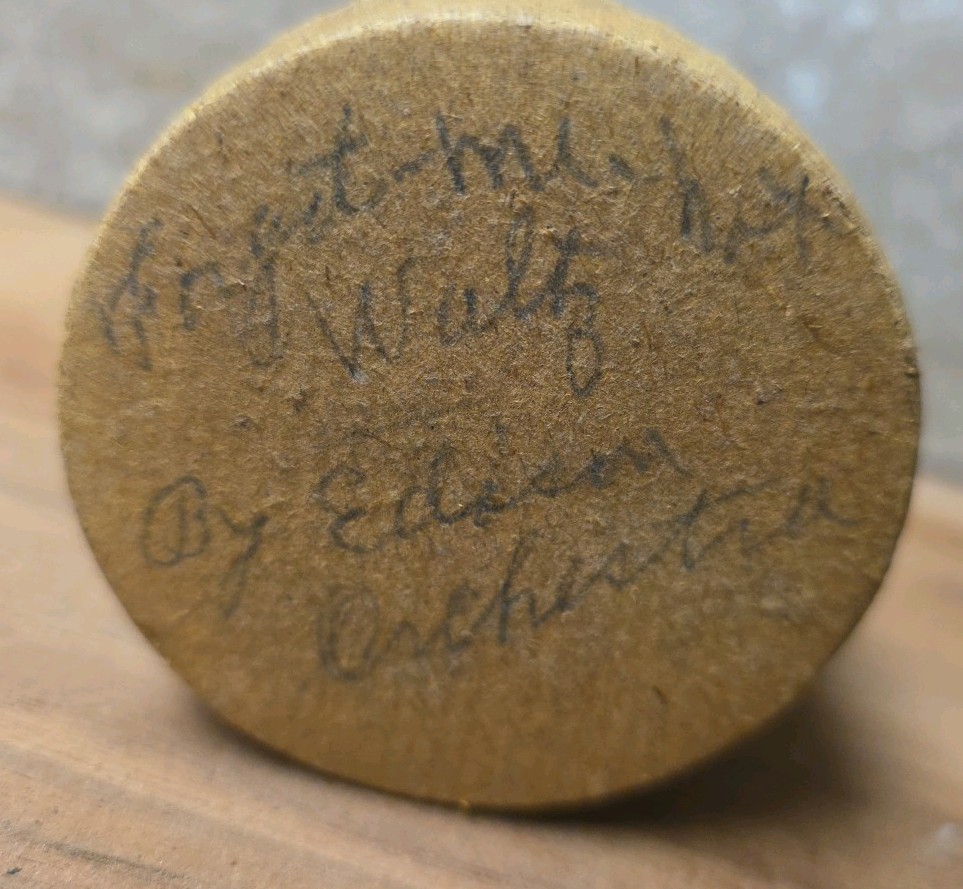 Forget-me-not
Waltz
By Edison
Orchestra